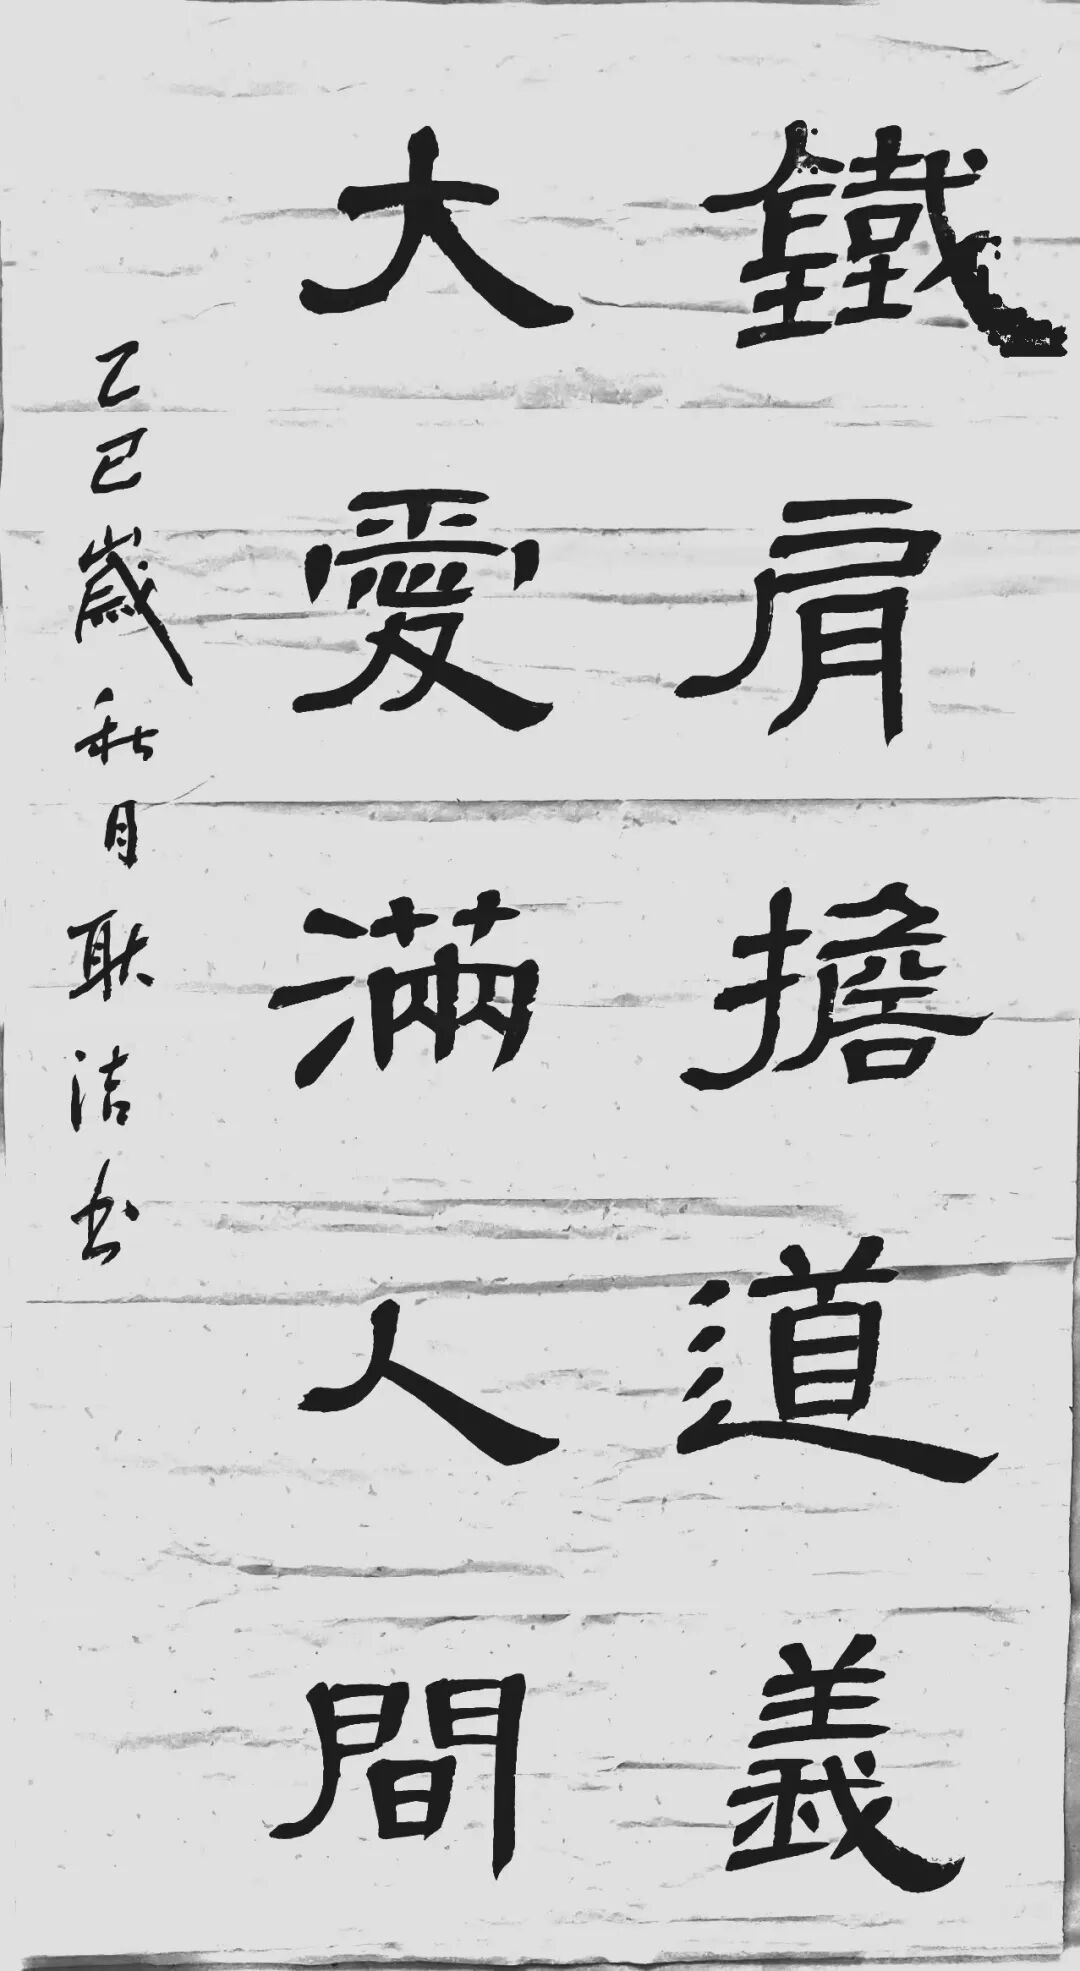 鐵肩擔道義
大愛滿人間
乙巳歲秋月耿洁书